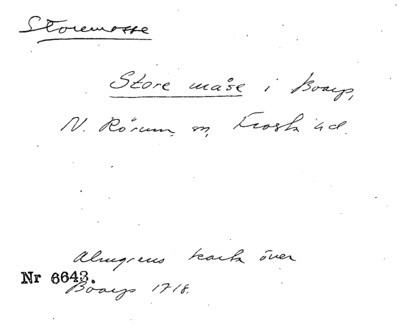 Storemosse
Store måse i Boarp,
N. Rörum, m, Frosta hd.
Almgrens karta över
Nr 6643.
Boarp 1718.